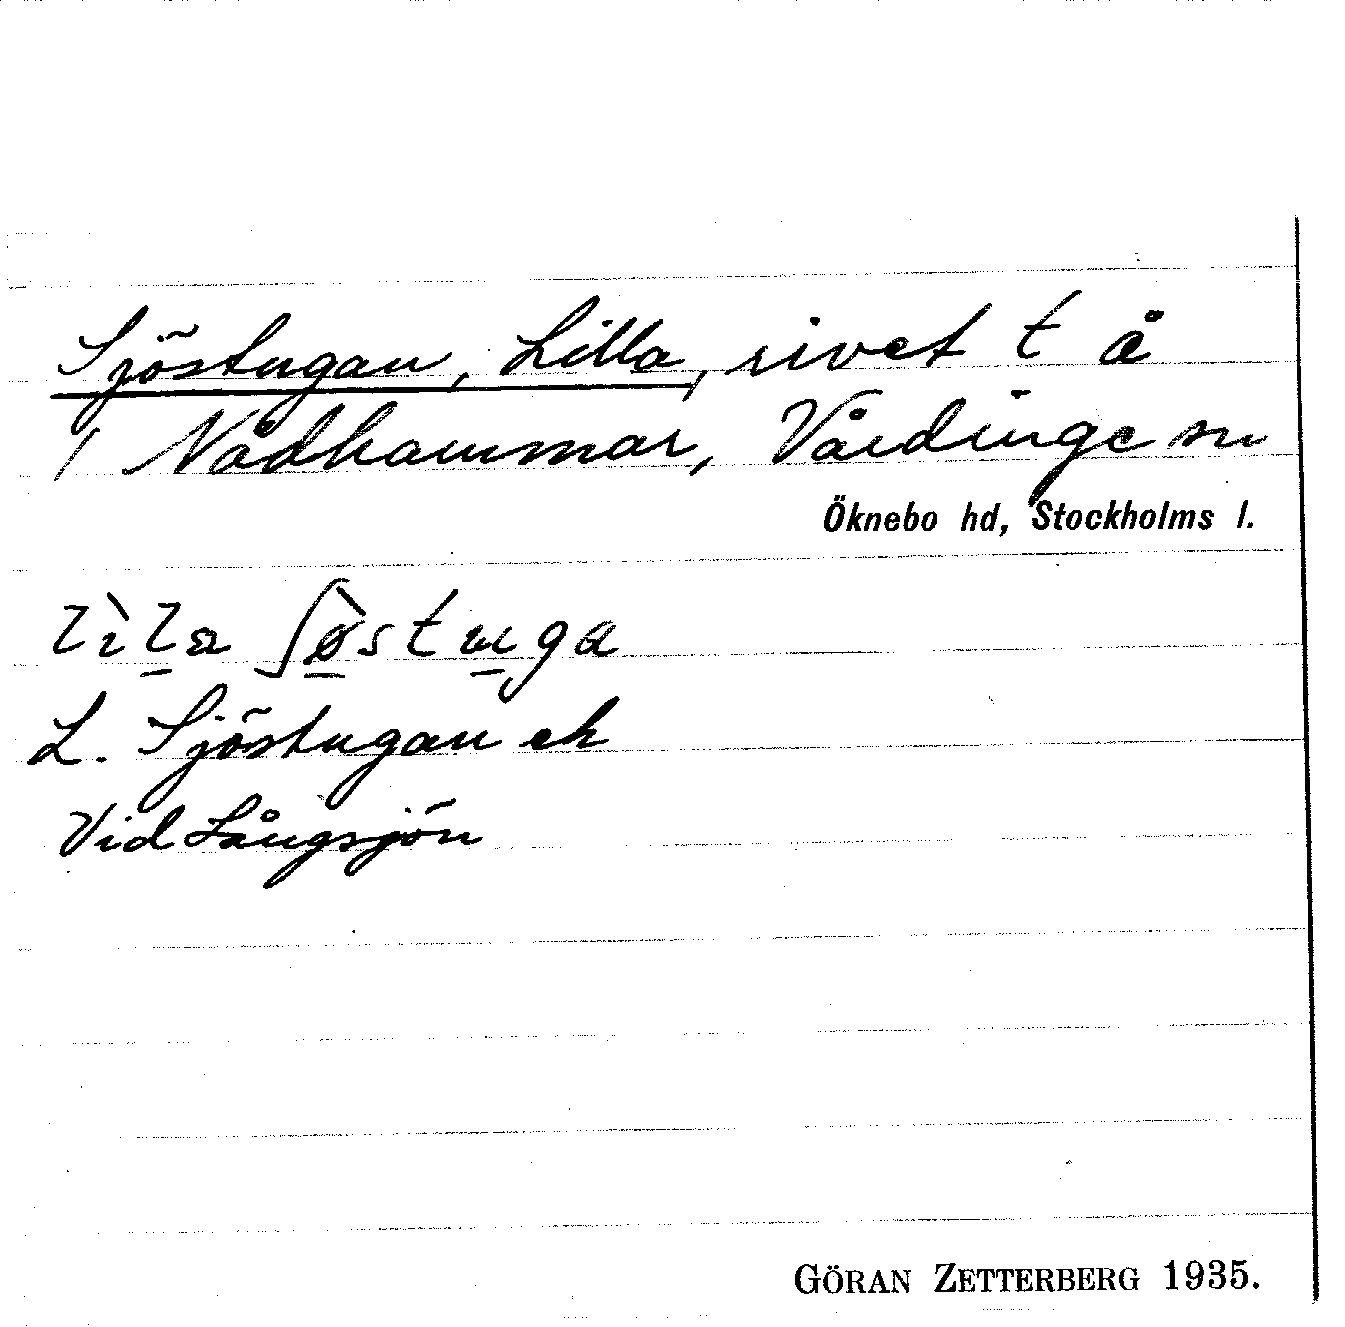 Sjöstugan, Lilla, rivet t å
1 Nådhammar, Vårdinge sn
Öknebo hd, Stockholms l.
L. Sjöstugan ek
Vid Långsjön
GÖRAN ZETTERBERG 1935.